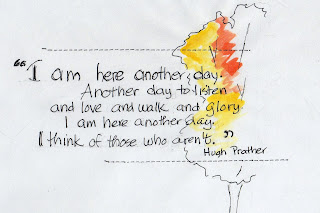 "I am here another day.
Another day to listen
and love and walk and glory.
I am here another day.
I think of those who aren't."
Hugh Prather